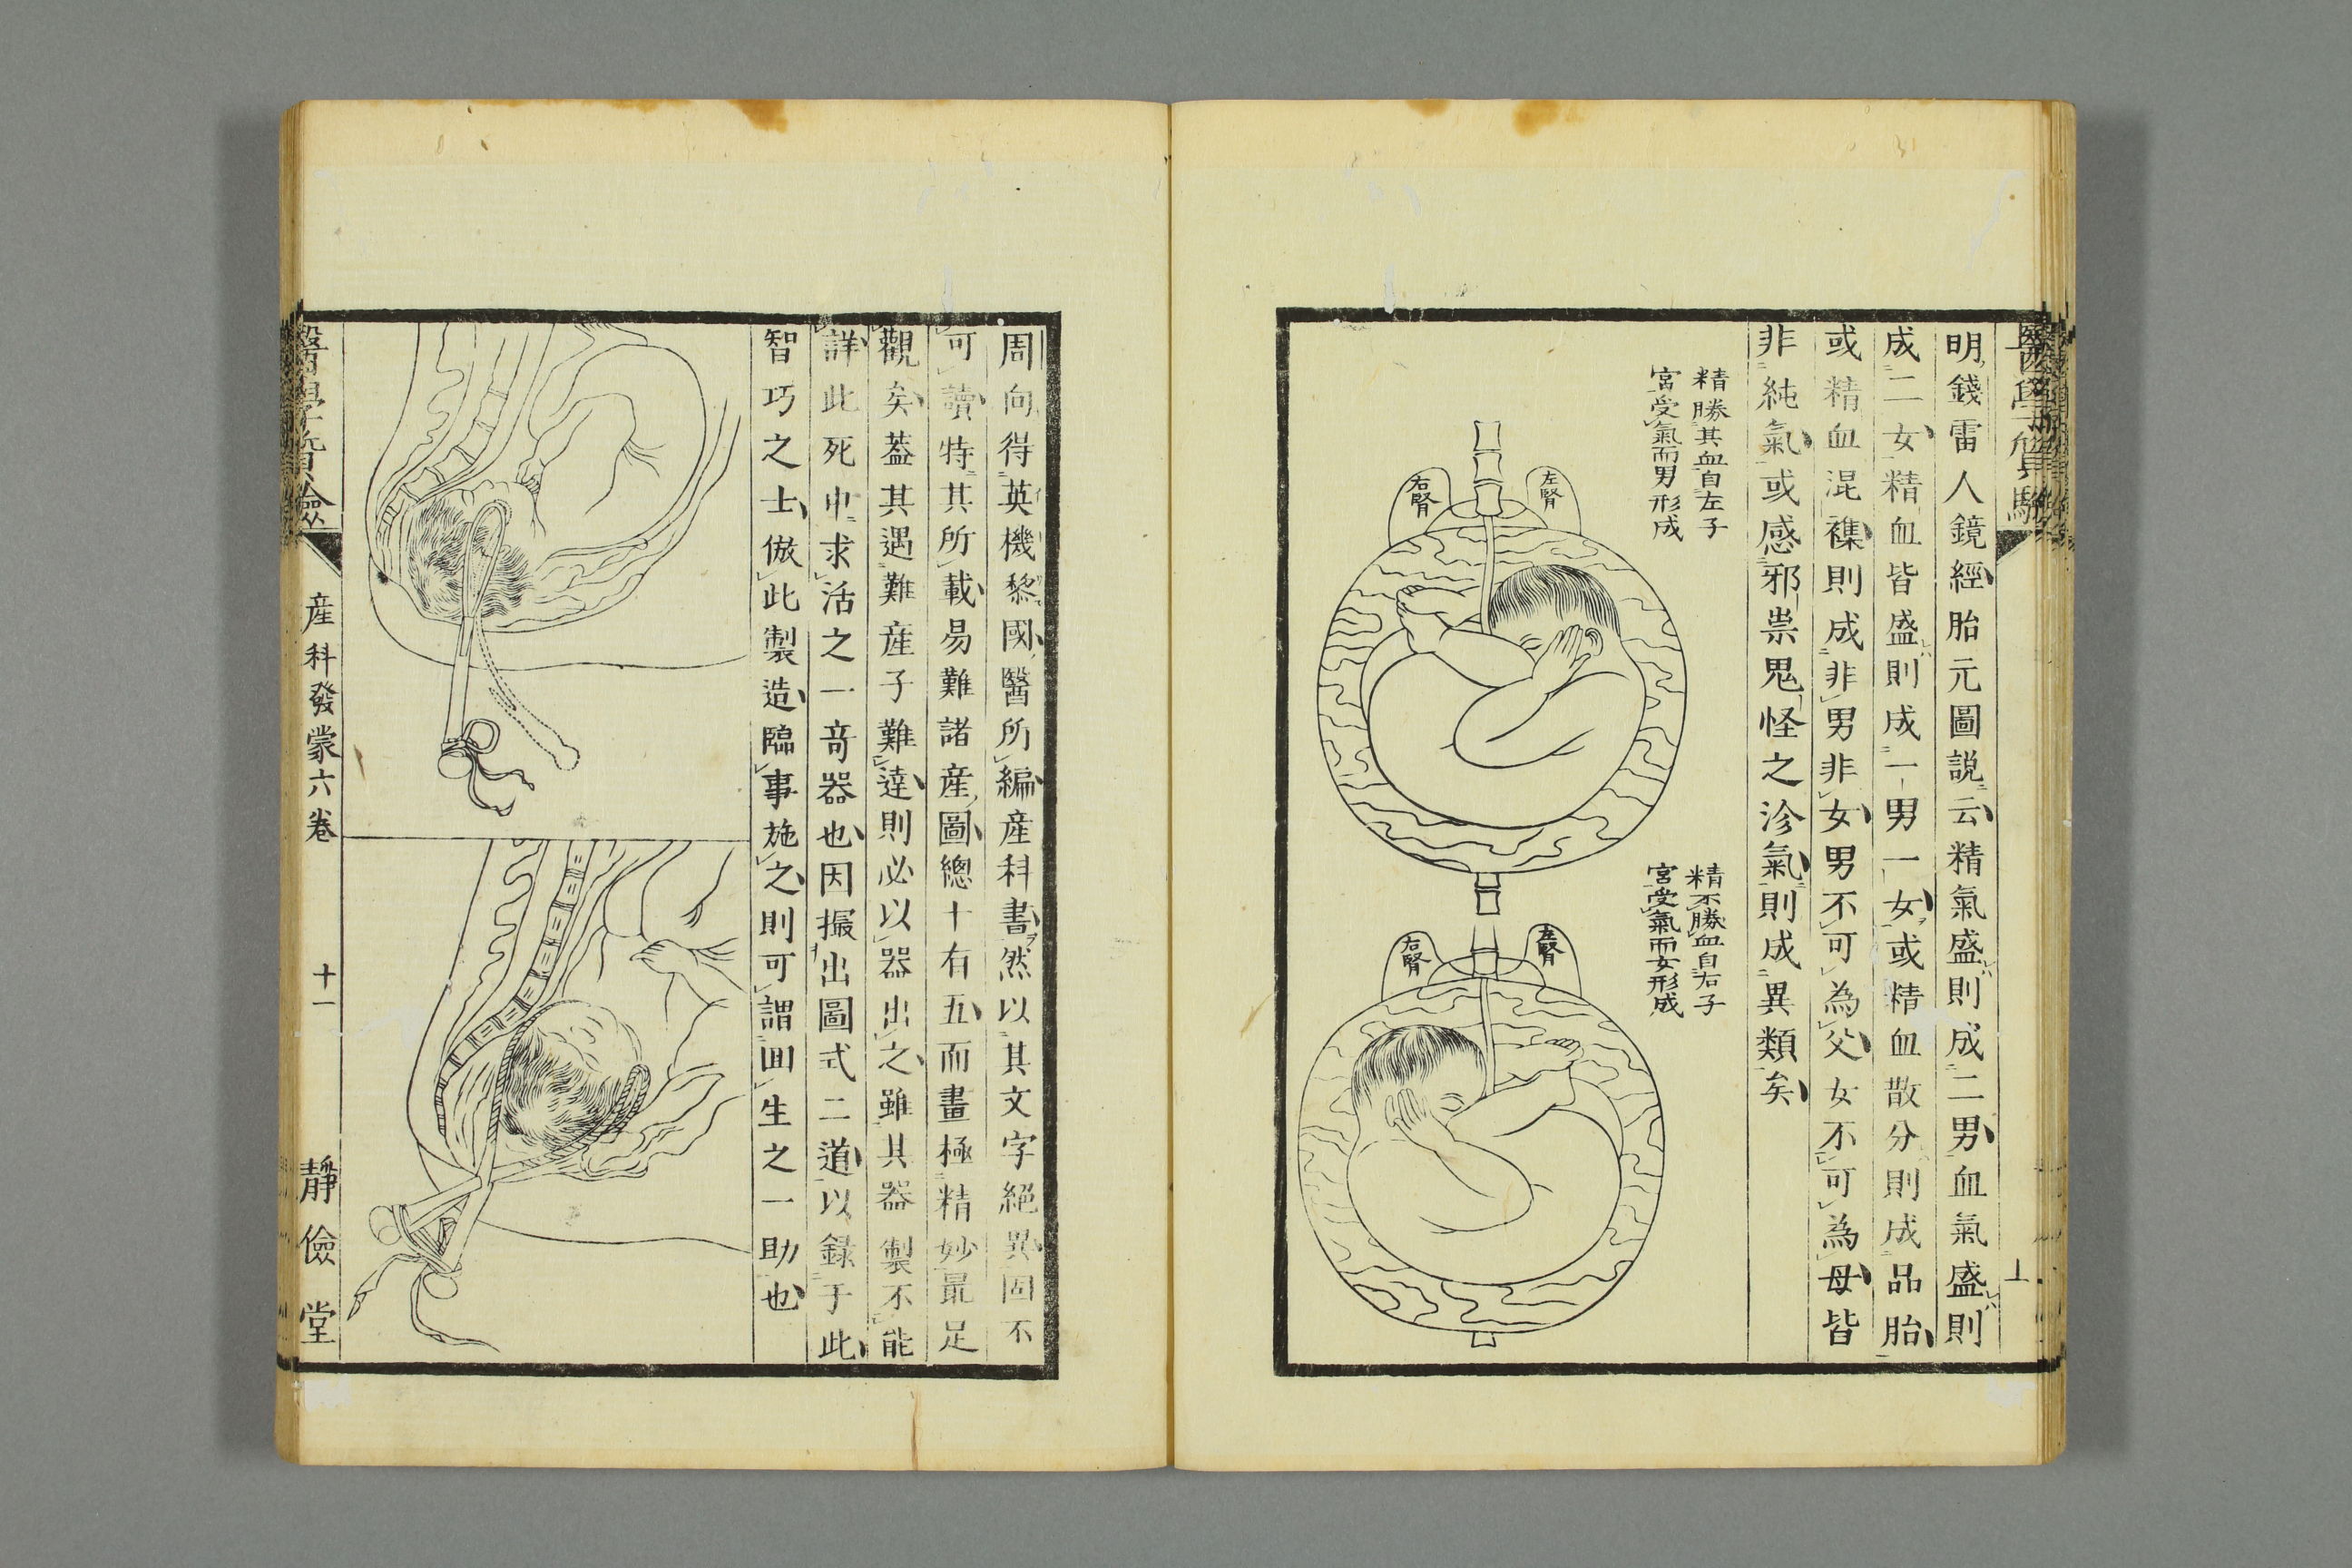 明錢雷人鏡經胎元圖説云精氣盛則成二男血氣盛則
成二女精血皆盛則成一男一女或精血散分則成品胎
或精血混襍則成非男非女男不可為父女不可為母皆
非純氣或感邪祟鬼怪之沴氣則成異類矣
精勝其血自左子
宮受氣而男形成
左腎
右腎
精不勝血自右子
宮受氣而女形成
左腎
右腎
周向得英機黎國醫所編産科書然以其文字絕異固不
可讀特其所載易難諸産圖總十有五而畫極精妙最足
觀矣葢其遇難産子難達則必以器出之雖其器製不能
詳此死中求活之一奇器也因撮出圖式二道以録于此
智巧之士倣此製造臨事施之則可謂回生之一助也
産科發蒙六卷
十一
靜儉堂